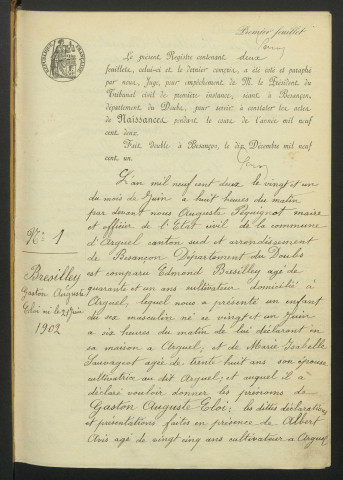 Premier feuillet
Le présent Registre contenant deux
feuillets, celui-ci et le dernier compris, a été coté et paraphé
par nous, Juge, pour empêchement de M. le Président du
Tribunal civil de première instance, séant à Besançon,
département du Doubs, pour servir à constater les actes
de Naissances pendant le cours de l'année mil neuf
cent deux.
Fait double à Besançon, le dix Décembre mil neuf
cent un.
L'an mil neuf cent deux le vingt et un
du mois de Juin à huit heures du matin
par devant nous Auguste Péquignot maire
et officier de l'Etat civil de la commune
d'Arguel canton sud et arrondissement
de Besançon Département du Doubs
est comparu Edmond Bresilley agé de
quarante et un ans cultivateur domicilié à
Arguel, lequel nous a présenté un enfant
du sex masculin né ce vingt et un Juin
à six heures du matin de lui déclarant en
sa maison a Arguel; et de Marie Isabelle
Sauvageot agée de trente huit ans son épouse
cultivatrice au dit Arguel; et auquel il a
déclaré vouloir donner les prénoms de
Gaston Auguste Eloi; les dittes déclarations
et présentations faites en présence de Albert
Avis agé de vingt cinq ans cultivateur a Arguel
N° 1
Bresilley
Gaston Auguste
Eloi né le 21 Juin
1902